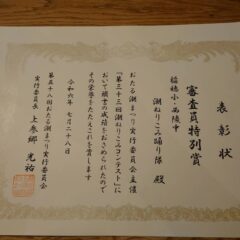 表彰状
審査員特別賞
稲穂小・西陵中
潮ねりこみ踊り隊 殿
おたる潮まつり実行委員会主催
「第三十三回潮ねりこみコンテスト」に
おいて頭書の成績をおさめられたので
その栄誉をたたえこれを賞します
令和六年七月二十八日
第五十八回おたる潮まつり実行委員会
実行委員長 上参郷 光祐